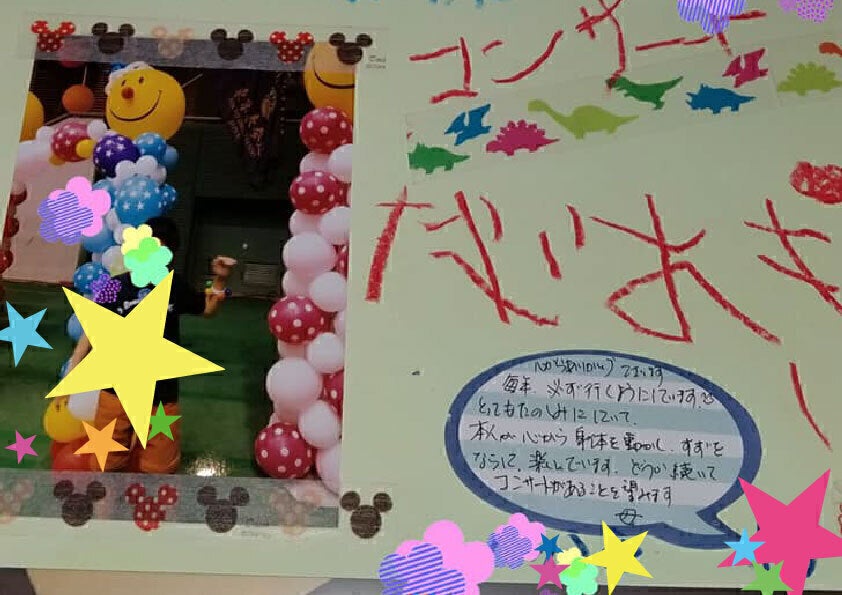 コンサー
心からありがとうございます
毎年、必ず行くようにしています。
とてもたのしみにしていて、
本人が心から身体を動かし、すずを
ならして、楽しんでいます。どうか続いて
コンサートがあることを望みます
母